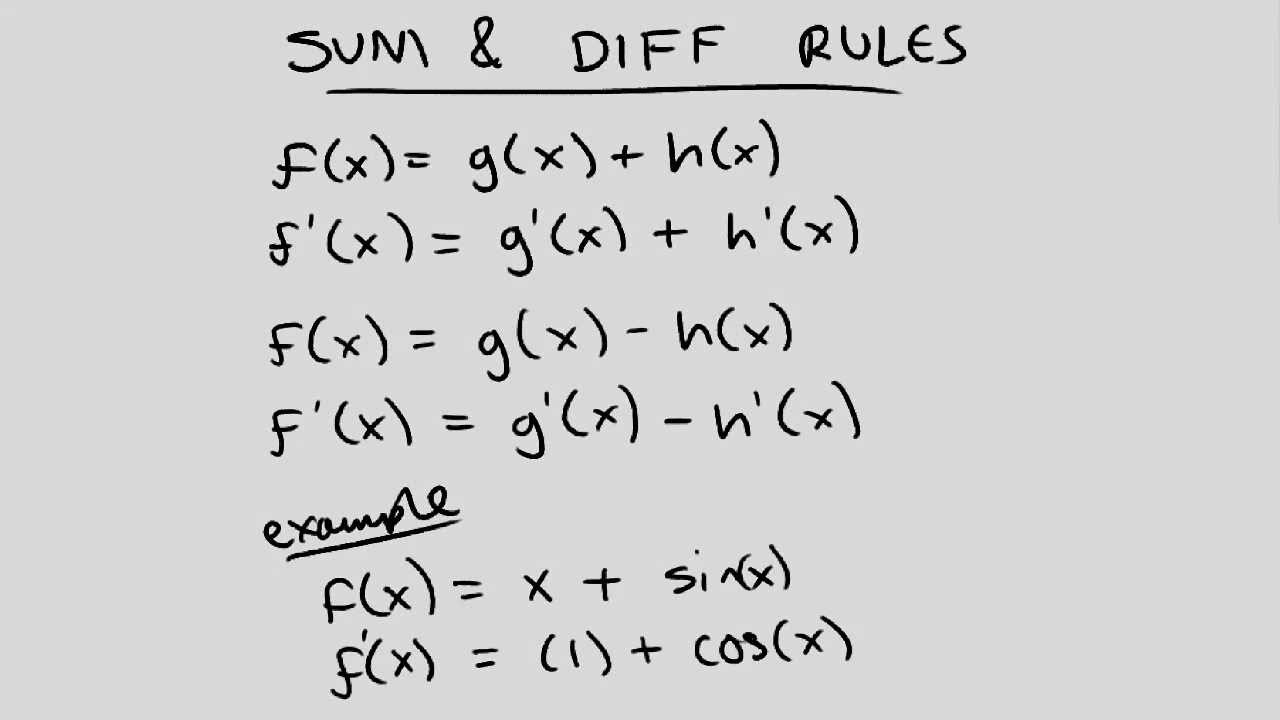 SUM & DIFF RULES
f(x) = g(x) + h(x)
f'(x) = g'(x) + h'(x)
f(x) = g(x) - h(x)
f'(x) = g'(x) - h'(x)
example
f(x) = x + sin(x)
f'(x) = (1) + cos(x)